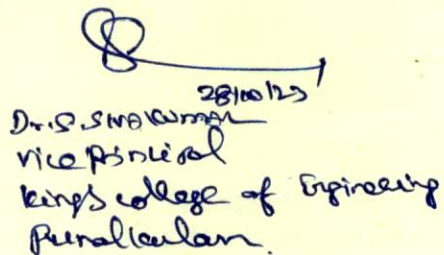 28/10/23
Dr. S. SIVAKUMAR
Vice Principal
King's college of Engineering
Punalkulam.